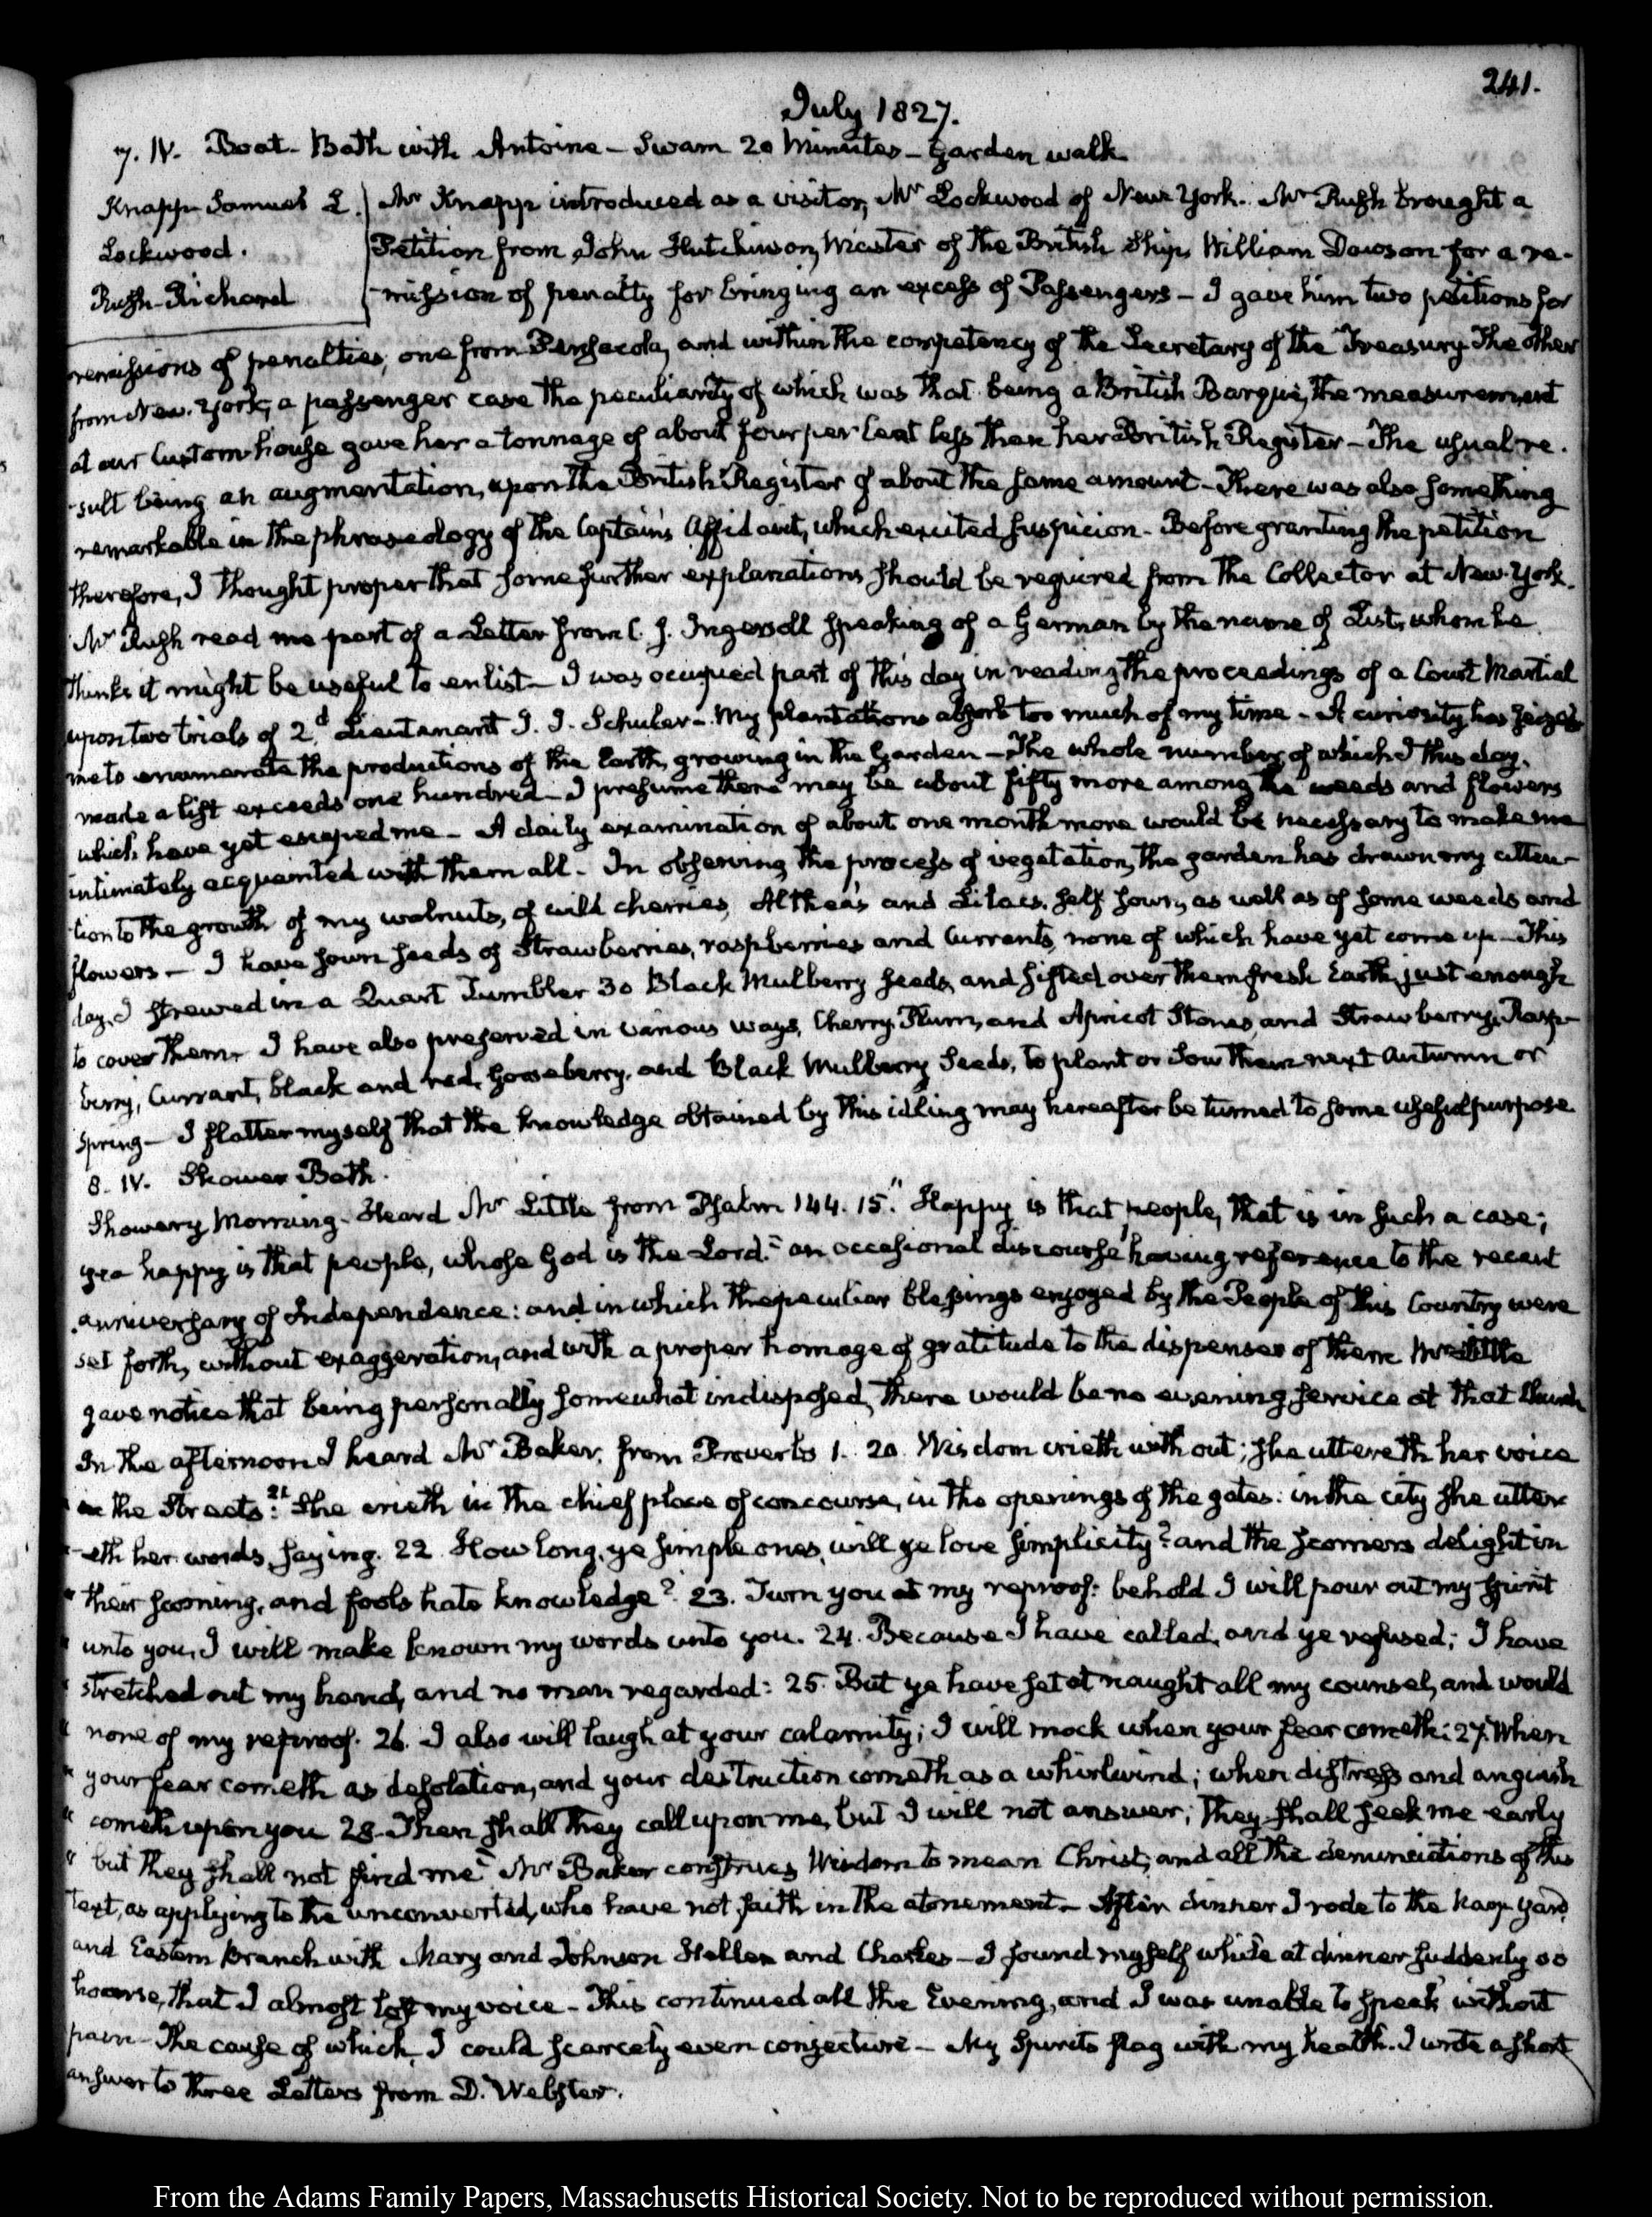 241.
July 1827.
7. IV. Boat. Bath with Antoine – Swam 20 Minutes – Garden walk.
Knapp Samuel L.
Lockwood.
Rush – Richard
Mr Knapp introduced as a visitor, Mr Lockwood of New York. Mr Rush brought a
Petition from John Hutchinson, Master of the British Ship William Dawson for a re-
-mission of penalty for bringing an excess of Passengers – I gave him two petitions for
remissions of penalties, one from Pensacola, and within the competency of the Secretary of the Treasury. The other
from New-York, a passenger case the peculiarity of which was that being a British Barque, the measurement
at our Custom-house gave her a tonnage of about four per Cent less than her British Register – The usual re-
-sult being an augmentation, upon the British Register of about the same amount – There was also something
remarkable in the phraseology of the Captain's Affidavit, which excited suspicion – Before granting the petition
therefore, I thought proper that some further explanations should be required from the Collector at New-York.
Mr Rush read me part of a Letter from C. J. Ingersoll speaking of a German by the name of List, whom he
thinks it might be useful to enlist – I was occupied part of this day in reading the proceedings of a Court Martial
upon two trials of 2d. Lieutenant I. I. Schuler – My plantations absorb too much of my time – A curiosity has seized
me to enumerate the productions of the Earth, growing in the Garden – The whole number of which I this day,
made a list exceeds one hundred – I presume there may be about fifty more among the weeds and flowers
which have yet escaped me – A daily examination of about one month more would be necessary to make me
intimately acquainted with them all – In observing the process of vegetation, the garden has drawn my atten-
-tion to the growth of my walnuts, of wild cherries, Altheas and Lilacs, self sown, as well as of some weeds and
flowers – I have sown seeds of Strawberries, raspberries and Currants, none of which have yet come up – This
day, I strewed in a Quart Tumbler 30 Black Mulberry seeds, and sifted over them fresh Earth, just enough
to cover them. I have also preserved in various ways, Cherry, Plum, and Apricot Stones, and Strawberry, Rasp-
berry, Currant, black and red, Gooseberry, and Black Mulberry Seeds, to plant or sow them next Autumn or
Spring – I flatter myself that the knowledge obtained by this idling may hereafter be turned to some useful purpose
8. IV. Shower Bath.
Showery Morning – Heard Mr Little from Psalm 144. 15. "Happy is that people, that is in such a case;
yea happy is that people, whose God is the Lord." an occasional discourse having reference to the recent
anniversary of Independence: and in which the peculiar blessings enjoyed by the People of this Country were
set forth, without exaggeration, and with a proper homage of gratitude to the dispenser of them. Mr Little
gave notice that being personally somewhat indisposed, there would be no evening service at that Church
In the afternoon I heard Mr Baker, from Proverbs 1. 20. Wisdom crieth without; she uttereth her voice
" in the Streets: 21 She crieth in the chief place of concourse, in the openings of the gates: in the city she utter
" -eth her words, saying. 22. How long, ye simple ones, will ye love simplicity? and the scorners delight in
" their scorning, and fools hate knowledge? 23. Turn you at my reproof: behold I will pour out my spirit
" unto you, I will make known my words unto you. 24. Because I have called, and ye refused; I have
" stretched out my hand, and no man regarded: 25. But ye have set at naught all my counsel, and would
" none of my reproof. 26. I also will laugh at your calamity; I will mock when your fear cometh: 27. When
" your fear cometh as desolation, and your destruction cometh as a whirlwind; when distress and anguish
" cometh upon you 28. Then shall they call upon me, but I will not answer; they shall seek me early
" but they shall not find me" Mr Baker construes Wisdom to mean Christ, and all the denunciations of this
text, as applying to the unconverted, who have not faith in the atonement – After dinner I rode to the Navy yard,
and Eastern Branch with Mary and Johnson Hellen and Charles – I found myself while at dinner suddenly so
hoarse, that I almost lost my voice – This continued all the Evening, and I was unable to speak without
pain – The cause of which, I could scarcely even conjecture – My Spirits flag with my health. I wrote a short
answer to three Letters from D. Webster.
From the Adams Family Papers, Massachusetts Historical Society. Not to be reproduced without permission.